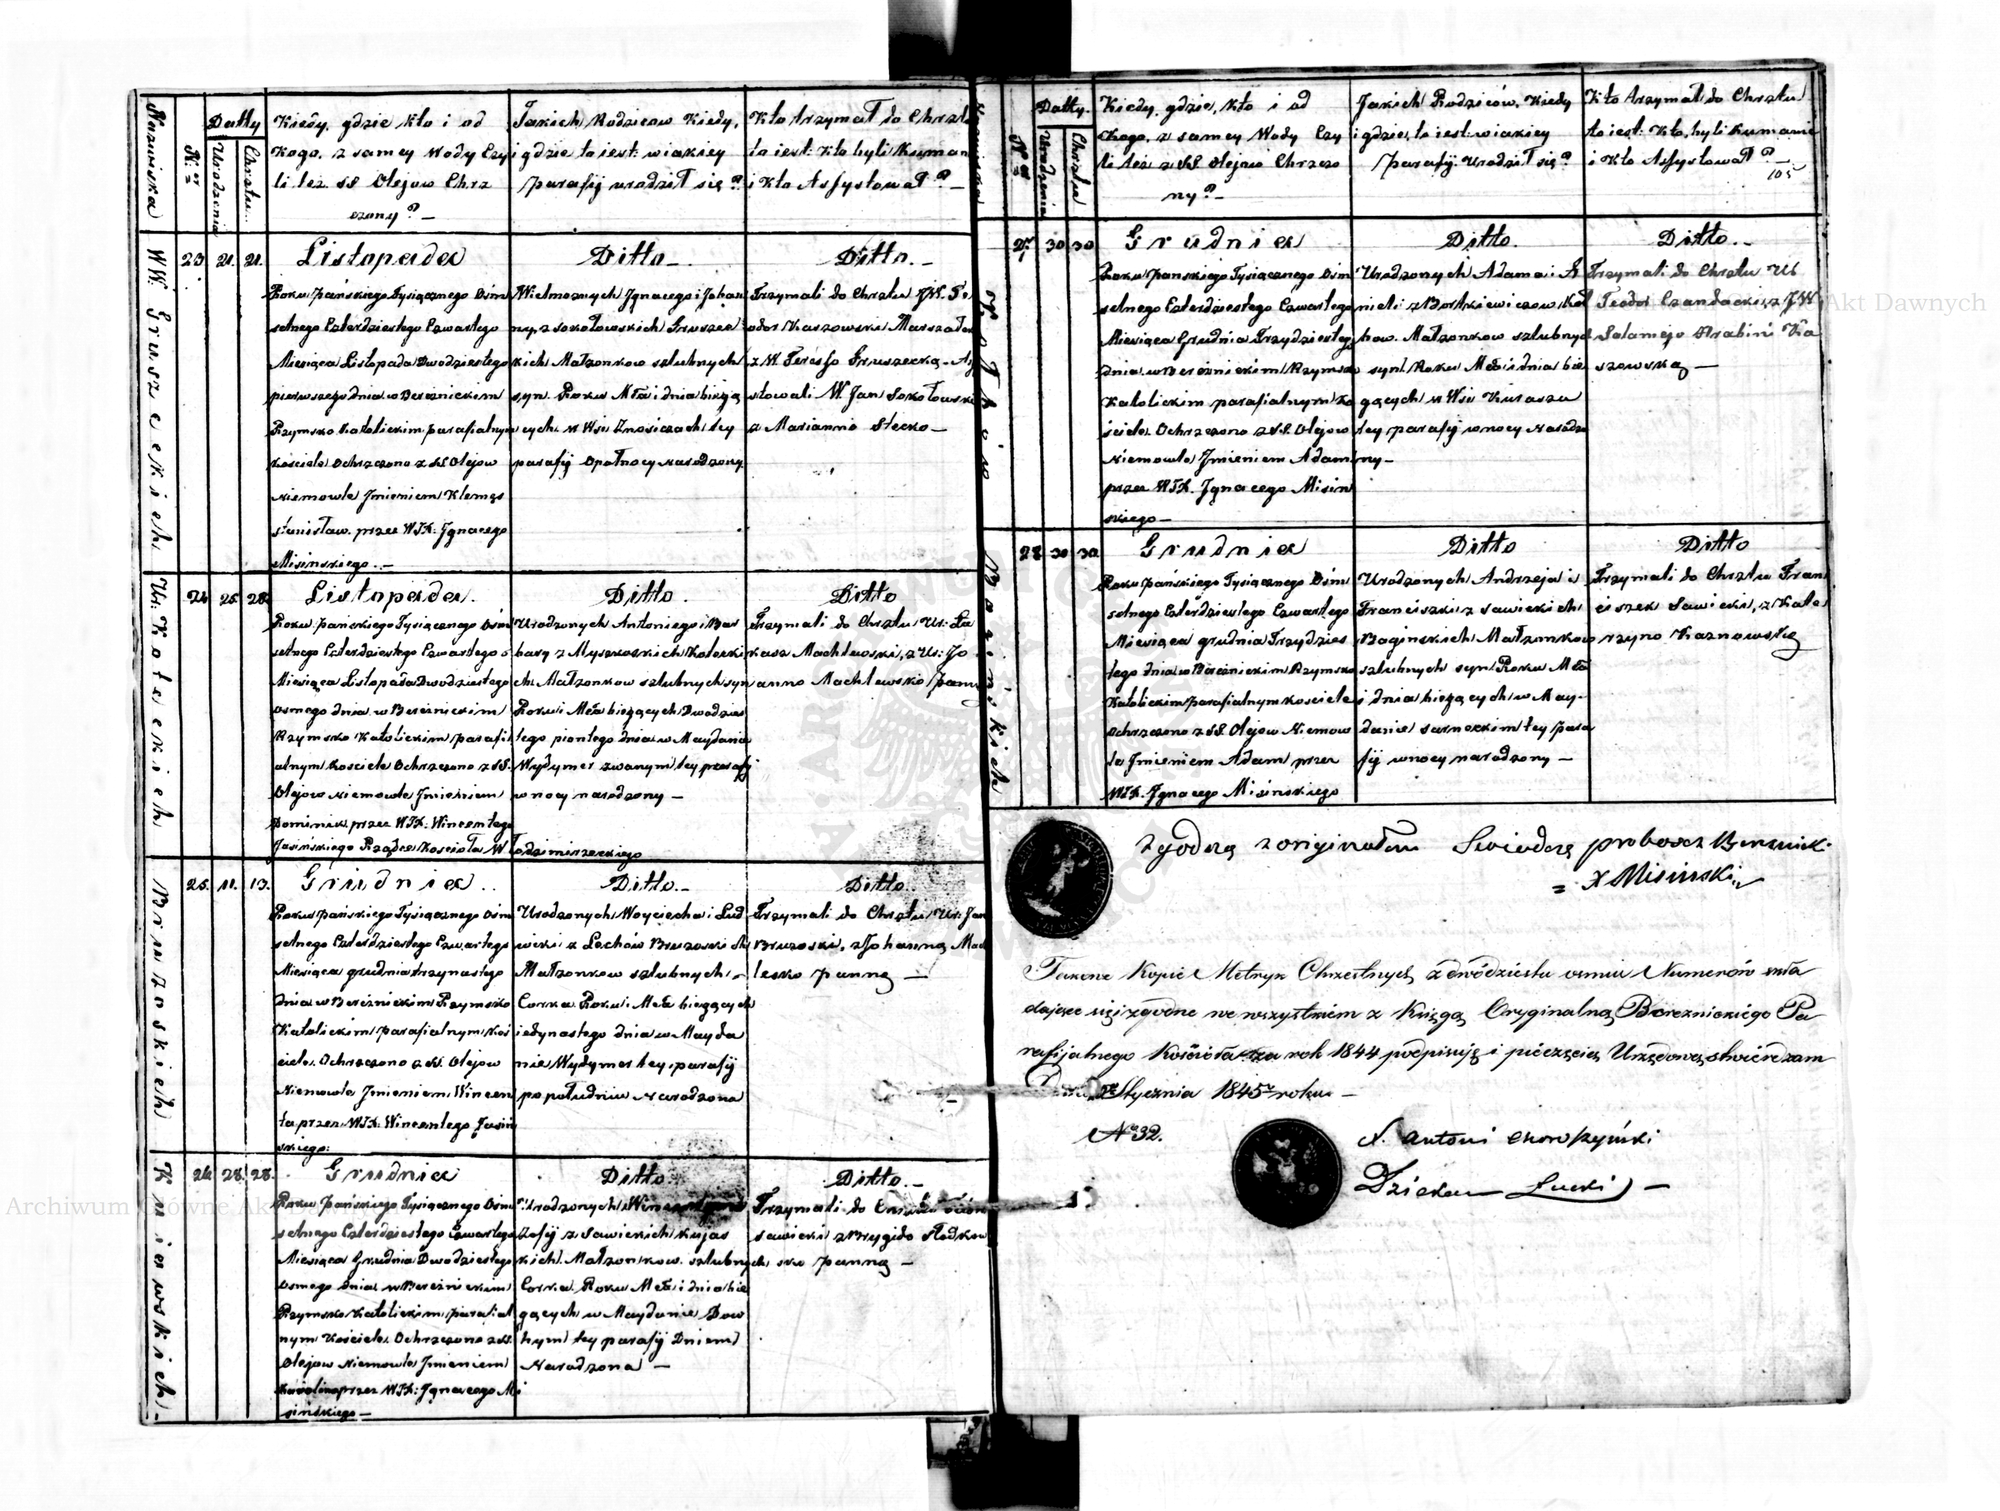 Nazwiska
N.er
Datty
Urodzenia
Chrztu
Kiedy, gdzie kto i od
kogo, z samey Wody czy
li też SS Olejow Chrz
czony? —
Jakich Rodzicow Kiedy,
i gdzie to iest: wiakiey
parafij urodził się?
Kto trzymał do Chrztu
to iest: Kto byli Kuman
i Kto Assystował? —
WW. Gruszeckich
23 21. 21.
Listopada
Roku Pańskiego Tysiącznego Ośm
setnego Czterdziestego Czwartego
Miesiąca Listopada Dwodziestego
pierwszego dnia w Bereżnickim
Rzymsko Katolickim parafialnym
Kosciele Ochrzczono z SS. Olejow
Niemowle Imieniem Klemęs
Stanisław przez WJX. Jgnacego
Misinskiego. —
Ditto —
Wielmoznych Jgnacego i Johan
ny z Sokołowskich Gruszec
kich Małzonkow szlubnych
syn. Roku Mca i dnia bieżą
cych w Wsi Znosiczach tey
parafij opołnocy narodzony
Ditto. —
Trzymali do Chrztu JW. Te
odor Kaszowski Marszałek
z W. Teresą Gruszecką — Asy
stowali W. Jan Sokołowski
z Marianno Stecko —
Ur. Koteckich
24 25. 28.
Listopada.
Roku Pańskiego Tysiącznego Ośm
setnego Czterdziestego Czwartego
Miesiąca Listopada Dwodziestego
osmego dnia w Bereżnickim
Rzymsko Katolickim parafi
alnym Kosciele Ochrzczono z SS.
Olejow Niemowle Imieniem
Dominik przez WJX: Wincentego
Jasińskiego Rządce Kosciola Włodzimirzeckiego
Ditto.
Urodzonych Antoniego i Bar
bary z Myszkoskich Kotecki
ch. Małzonkow szlubnych syn
Roku i Mca bieżących Dwodzies
tego piontego dnia w Maydanie
Wydymer zwanym tey parafij
w nocy narodzony —
Ditto
Trzymali do Chrztu Ur: Łu
kasz Machlewski, z Ur: Jo
anno Machlewsko panną
Bruzoskich
25. 11. 13.
Grudnia.
Roku Pańskiego Tysiącznego Ośm
setnego Czterdziestego Czwartego
Miesiąca grudnia trzynastego
dnia w Bereżnickim Rzymsko
Katolickim parafialnym Koś
ciele. Ochrzczono z SS. Olejow
Niemowle Imieniem Wincen
ta przez WJX: Wincentego Jasiń
skiego:
Ditto —
Urodzonych Woyciecha i Lud
wiki z Lechów Bruzoskich
Małzonkow szlubnych —
Corka Roku i Mca bieżących
iedynastego dnia w Mayda
nie Wydymer tey parafij
popołudniu Narodzona
Ditto.
Trzymali do Chrztu Ur: Jan
Bruzoski, z Johanną Mach
lesko panną —
Kuiawskich
26 28. 28.
Grudnia
Roku Pańskiego Tysiącznego Ośm
setnego Czterdziestego Czwartego
Miesiąca Grudnia Dwodziestego
Osmego dnia w Bereżnickim
Rzymsko Katolickim parafial
nym Kosciele. Ochrzczono z SS.
Olejow Niemowle Imieniem
Karolina przez WJX: Jgnacego Mi
sińskiego —
Ditto
Urodzonych
Zofij z Sawickich Kujas
kich. Małzonkow. szlubnych
Corka Roku Mca i dnia bie
gących w Maydanie Dow
hym tey parafij Dniem
Narodzona —
Ditto —
Trzymali do
Sawicki z Brygido Hodkow
sko panną —
N.er
Datty.
Urodzenia
Chrztu
Kiedy, gdzie, kto i od
Kogo, z samey Wody Czy
li też z SS Olejow Chrzczo
ny? —
Jakich Rodziców, Kiedy
i gdzie, to iest: wiakiey
parafij. Urodził się?
Kto trzymał do Chrztu
to iest: Kto, byli Kumami
i Kto Assystował? —
105
27. 30 30
Grudnia
Roku Pańskiego Tysiącznego Ośm
setnego Czterdziestego Czwartego
Miesiąca Grudnia Trzydziestego
dnia w Bereżnickim Rzymsko
Katolickim parafialnym Ko
ściele. Ochrzczono z SS. Olejow
Niemowle Imieniem Adam
przez WJX. Jgnacego Misin
skiego —
Ditto.
Urodzonych Adama i A
nieli z Bortkiewiczow
how. Małzonkow szlubnych
syn Roku Mca i dnia bie
gących w Wsi Kuraszu
tey parafij w nocy Narodzo
ny —
Ditto. —
Trzymali do Chrztu Ur
Teodor Czandacki, z JW
Salomeją Hrabini Ka
szowską —
Bagińskich
28 30 30
Grudnia
Roku Pańskiego Tysiącznego Ośm
setnego Czterdziestego Czwartego
Miesiąca grudnia Trzydzies
tego dnia w Bereżnickim Rzymsko
Katolickim parafialnym Kosciele
Ochrzczono z SS. Olejow Niemow
le Imieniem Adam przez
WJX. Jgnacego Misińskiego
Ditto
Urodzonych Andrzeja i
Franciszki z Sawickich
Bagińskich Małzonkow
szlubnych syn Roku Mca
i dnia bieżących w May-
danie Sarneckim tey para
fij w nocy narodzony —
Ditto
Trzymali do Chrztu Fran
ciszek Sawicki, z Kata
rzyno Kaznowską
Zgodzą z originałem Swiadczę proboscz Bereznick.
= X Misinski
Takowe Kopie Metryk Chrzestnych z dwódziestu osmiu Numerów skła
dające się i zgodne we wszystkiem z Księgą Oryginalną Bereznickiego Pa
rafijalnego Kościoła za rok 1844 podpisuję i pieczęcią Urzędową stwierdzam
Stycznia 1845 roku —
N 32.
X. Antoni
Dziekan Łucki —
Archiwum Główne Akt Dawnych